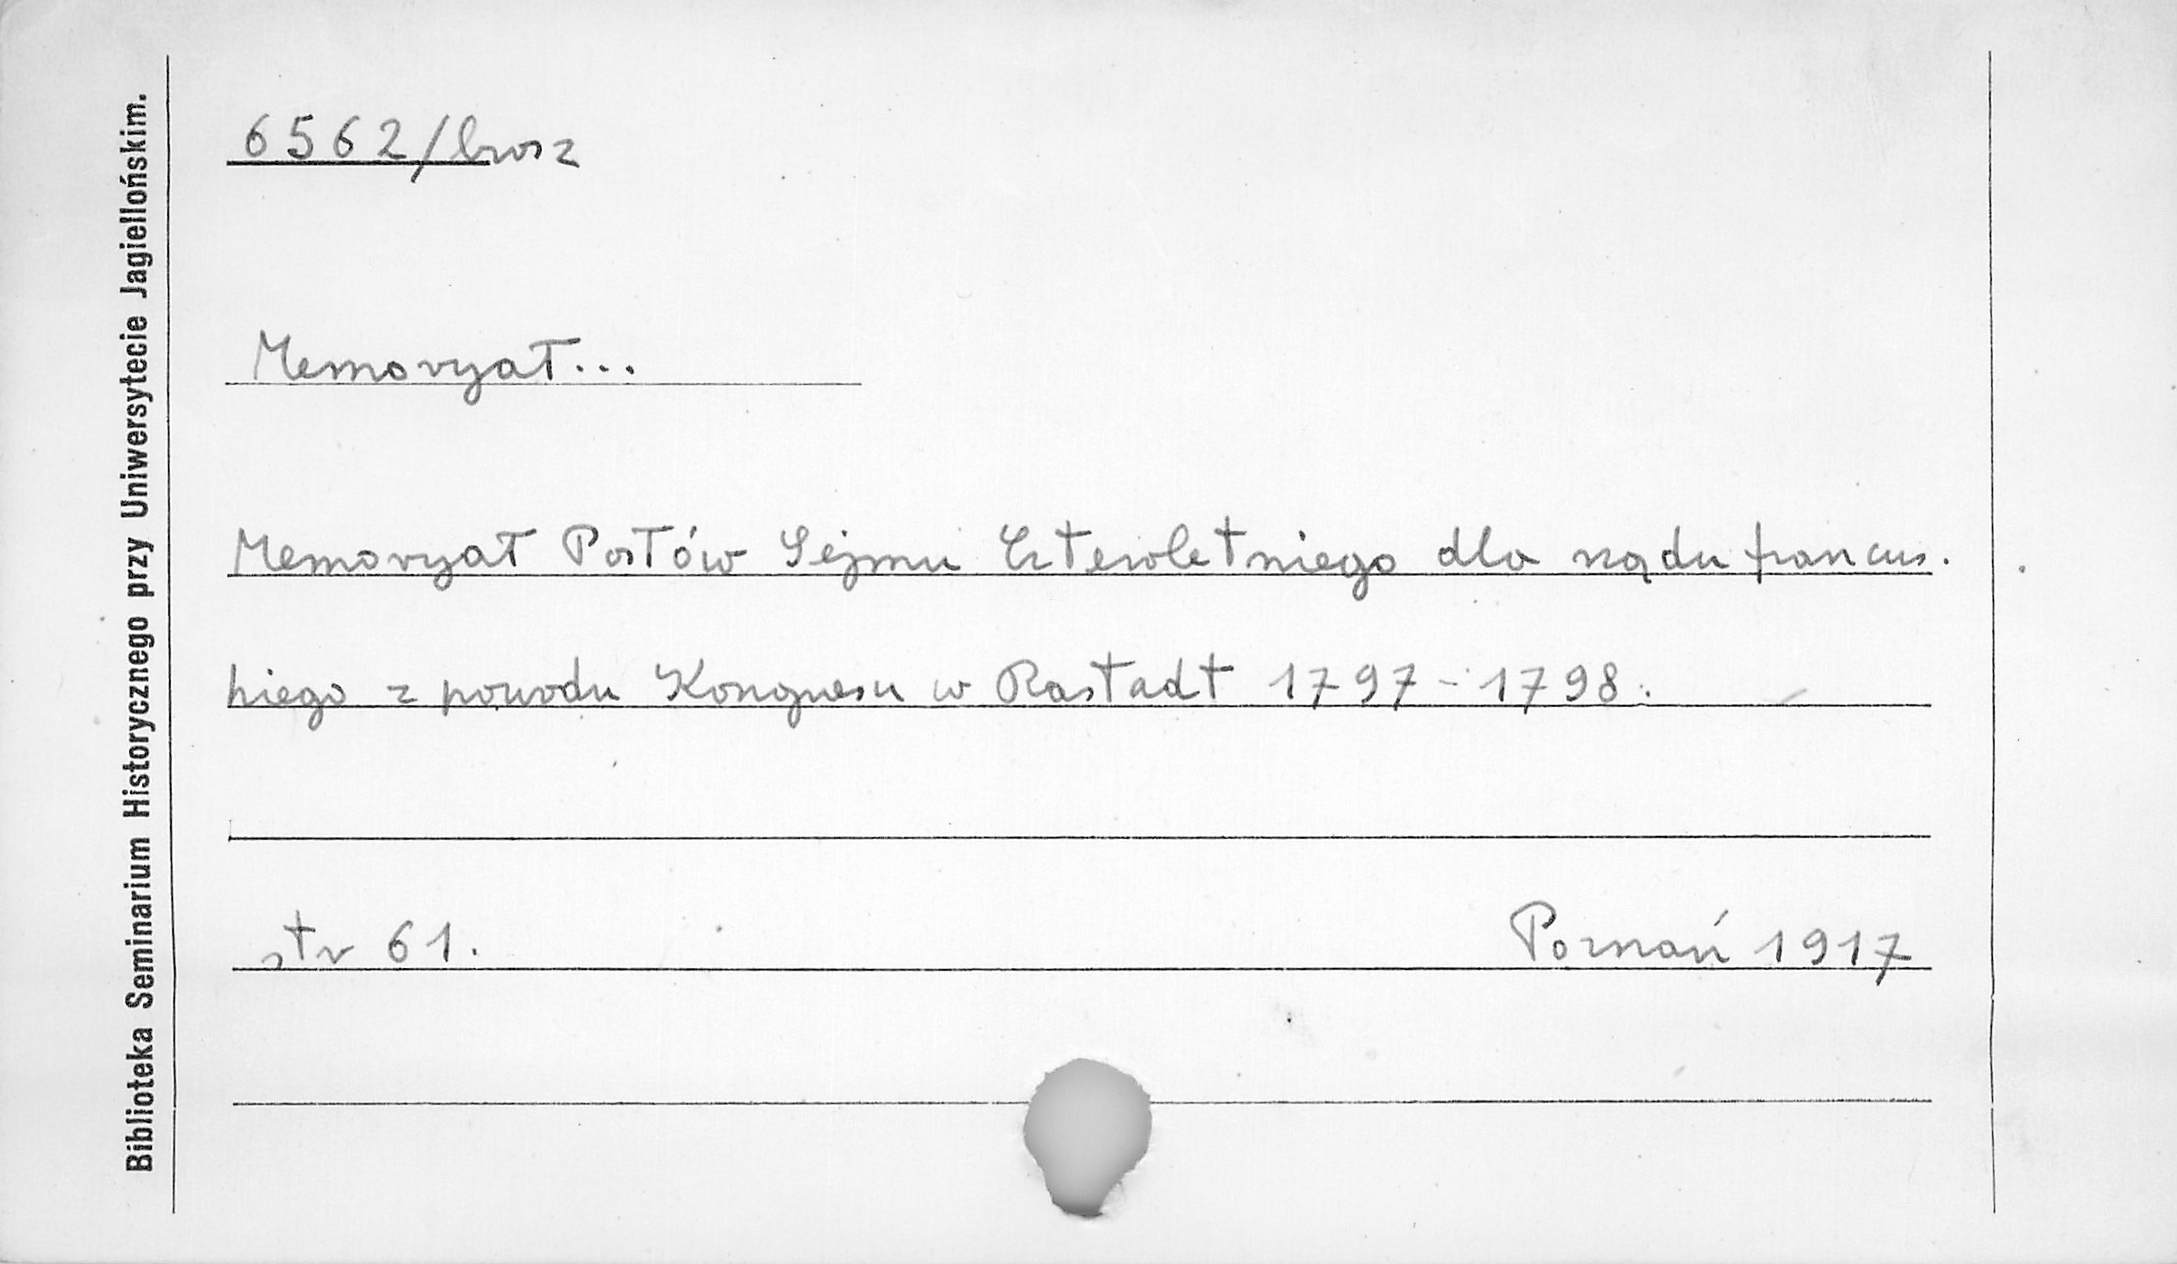 Biblioteka Seminarium Historycznego przy Uniwersytecie Jagiellońskim.
6562/brosz
Memoryał...
Memoryał Posłów Sejmu Czteroletniego dla rządu francus.
kiego z powodu Kongresu w Rastadt 1797-1798.
str 61. Poznań 1917